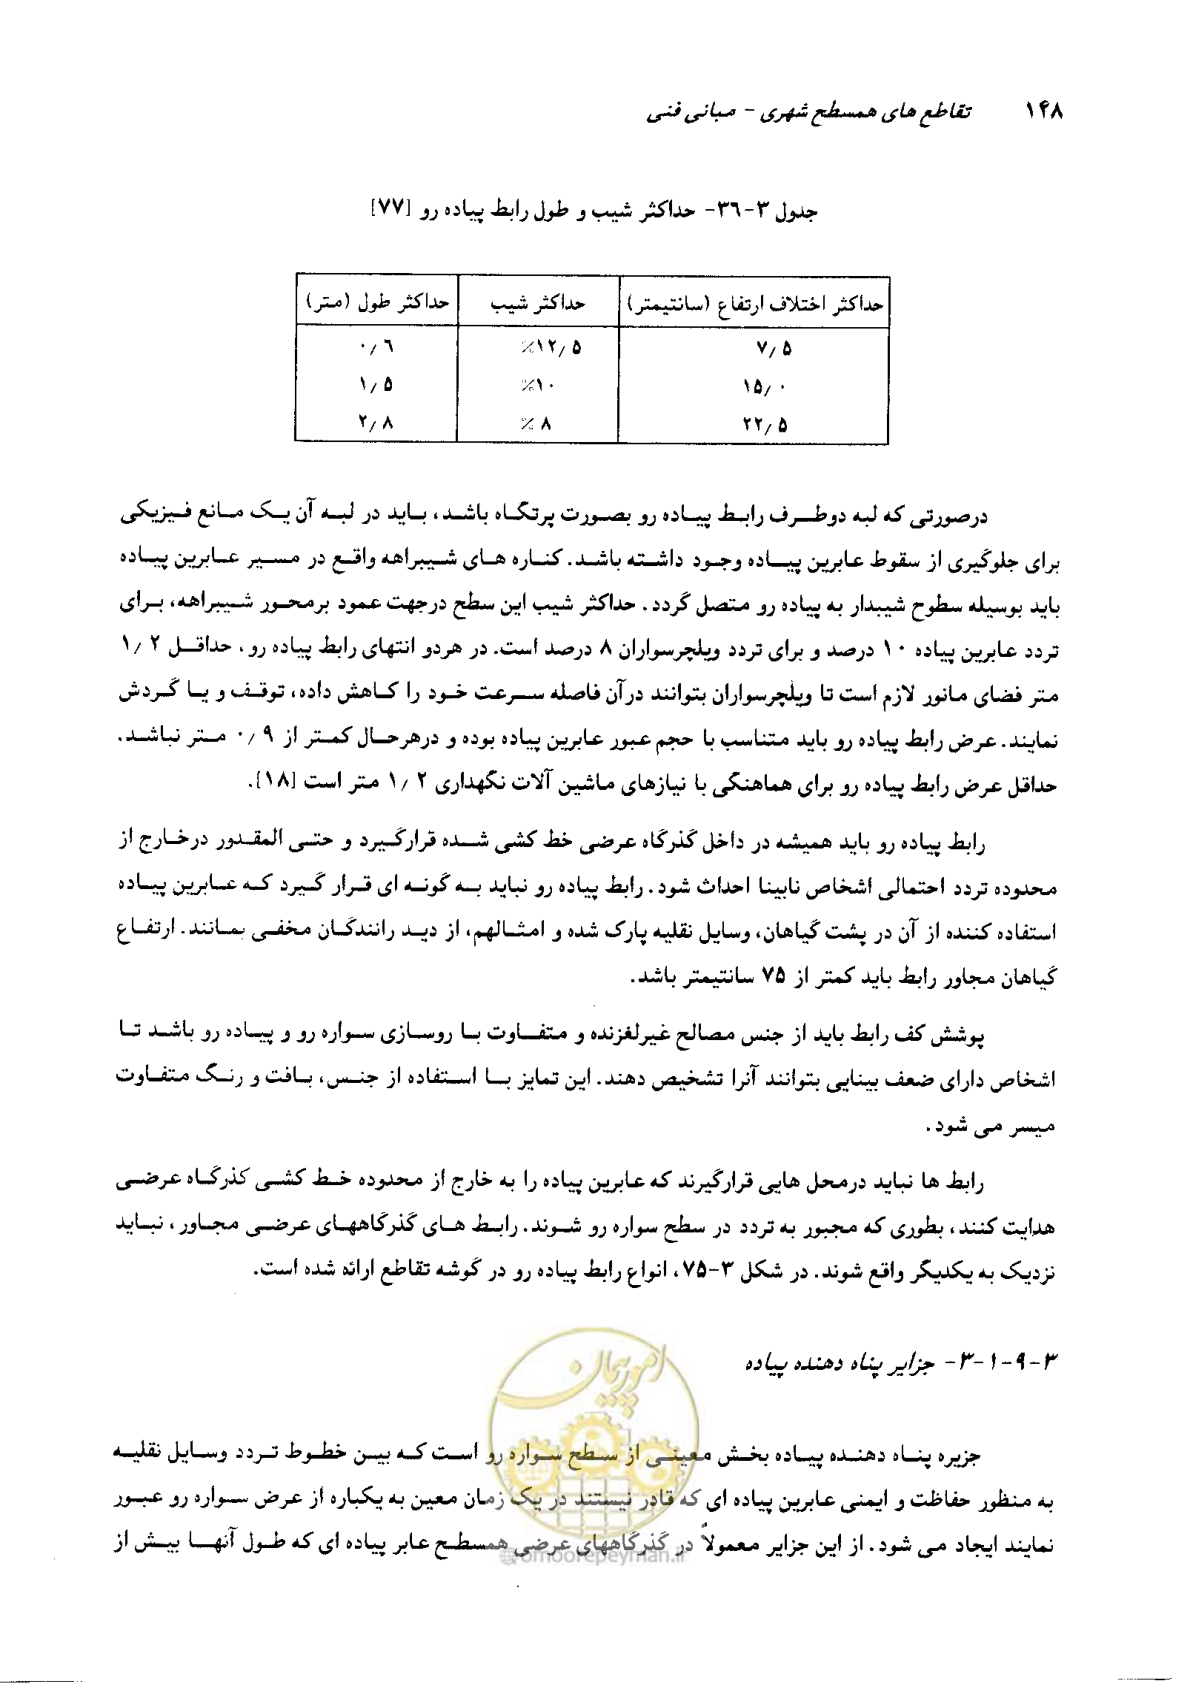 ۱۴۸ تقاطع های همسطح شهری - مبانی فنی
جدول ۳-۳٦- حداکثر شیب و طول رابط پیاده رو [۷۷]
حداکثر اختلاف ارتفاع (سانتیمتر) حداکثر شیب حداکثر طول (متر)
۷/۵ ٪۱۲/۵ ۰/٦
۱۵/۰ ٪۱۰ ۱/۵
۲۲/۵ ٪۸ ۲/۸
درصورتی که لبه دوطرف رابط پیاده رو بصورت پرتگاه باشد، باید در لبه آن یک مانع فیزیکی
برای جلوگیری از سقوط عابرین پیاده وجود داشته باشد. کناره های شیبراهه واقع در مسیر عابرین پیاده
باید بوسیله سطوح شیبدار به پیاده رو متصل گردد. حداکثر شیب این سطح درجهت عمود برمحور شیبراهه، برای
تردد عابرین پیاده ۱۰ درصد و برای تردد ویلچرسواران ۸ درصد است. در هردو انتهای رابط پیاده رو، حداقل ۱/۲
متر فضای مانور لازم است تا ویلچرسواران بتوانند درآن فاصله سرعت خود را کاهش داده، توقف و یا گردش
نمایند. عرض رابط پیاده رو باید متناسب با حجم عبور عابرین پیاده بوده و درهرحال کمتر از ۰/۹ متر نباشد.
حداقل عرض رابط پیاده رو برای هماهنگی با نیازهای ماشین آلات نگهداری ۱/۲ متر است [۱۸].
رابط پیاده رو باید همیشه در داخل گذرگاه عرضی خط کشی شده قرارگیرد و حتی المقدور درخارج از
محدوده تردد احتمالی اشخاص نابینا احداث شود. رابط پیاده رو نباید به گونه ای قرار گیرد که عابرین پیاده
استفاده کننده از آن در پشت گیاهان، وسایل نقلیه پارک شده و امثالهم، از دید رانندگان مخفی بمانند. ارتفاع
گیاهان مجاور رابط باید کمتر از ۷۵ سانتیمتر باشد.
پوشش کف رابط باید از جنس مصالح غیرلغزنده و متفاوت با روسازی سواره رو و پیاده رو باشد تا
اشخاص دارای ضعف بینایی بتوانند آنرا تشخیص دهند. این تمایز با استفاده از جنس، بافت و رنگ متفاوت
میسر می شود.
رابط ها نباید درمحل هایی قرارگیرند که عابرین پیاده را به خارج از محدوده خط کشی گذرگاه عرضی
هدایت کنند، بطوری که مجبور به تردد در سطح سواره رو شوند. رابط های گذرگاههای عرضی مجاور، نباید
نزدیک به یکدیگر واقع شوند. در شکل ۳-۷۵، انواع رابط پیاده رو در گوشه تقاطع ارائه شده است.
۳-۹-۱-۳- جزایر پناه دهنده پیاده
امور پیمان
جزیره پناه دهنده پیاده بخش معینی از سطح سواره رو است که بین خطوط تردد وسایل نقلیه
به منظور حفاظت و ایمنی عابرین پیاده ای که قادر نیستند در یک زمان معین به یکباره از عرض سواره رو عبور
نمایند ایجاد می شود. از این جزایر معمولاً در گذرگاههای عرضی همسطح عابر پیاده ای که طول آنها بیش از
omoorepeyman.ir